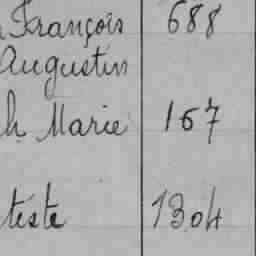 François 688
Augustin
h Marie 167
teste 1304